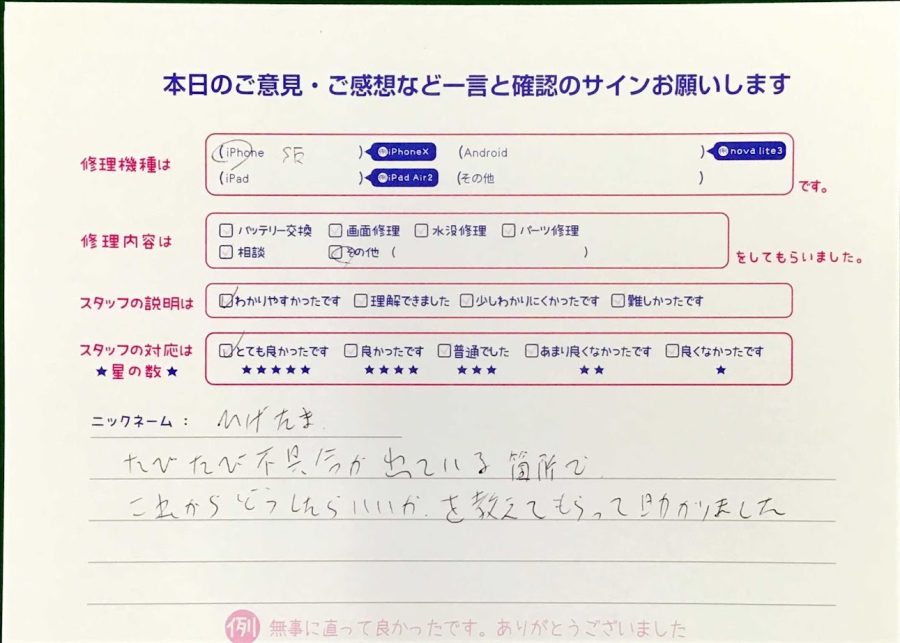 本日のご意見・ご感想など一言と確認のサインお願いします
修理機種は
(iPhone SE ) 例iPhoneX (Android ) 例nova lite3
(iPad ) 例iPad Air2 (その他 ) です。
修理内容は
バッテリー交換 画面修理 水没修理 パーツ修理
相談 その他 ( ) をしてもらいました。
スタッフの説明は わかりやすかったです 理解できました 少しわかりにくかったです 難しかったです
スタッフの対応は とても良かったです 良かったです 普通でした あまり良くなかったです 良くなかったです
★星の数★ ★★★★★ ★★★★ ★★★ ★★ ★
ニックネーム： いげたま
たびたび不具合が出ている箇所で
これからどうしたらいいか.を教えてもらって助かりました
例 無事に直って良かったです。ありがとうございました